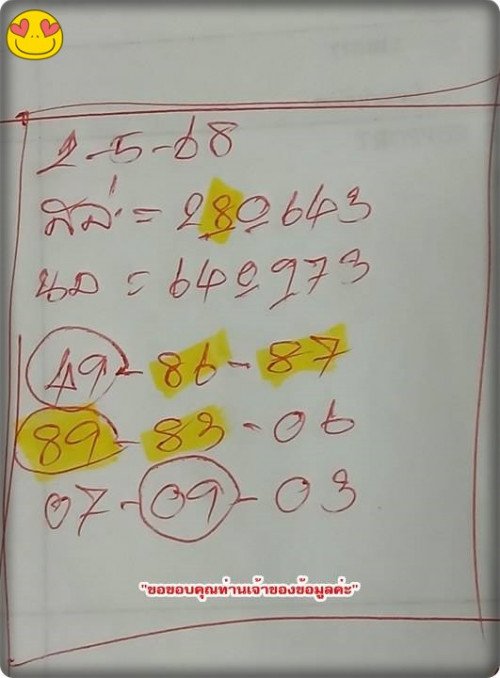 2-5-68
สล่ = 280643
นอ = 640973
49-86-87
89-83-06
07-09-03
"ขอขอบคุณท่านเจ้าของข้อมูลค่ะ"